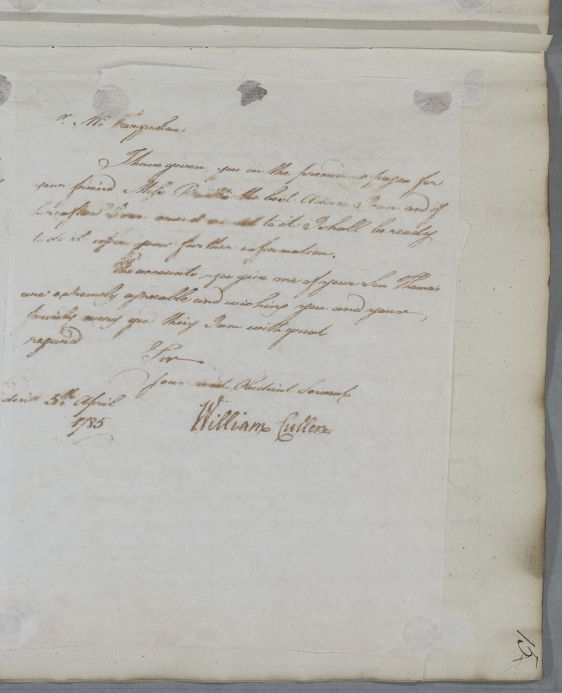 Mr. Farquhar
I have given you on the preceding pages for
your friend Miss the best Advice I can and if
hereafter I can add to it I shall be ready
to do it upon your further information.
The accounts you give me of your Son Thomas
are extremely agreeable and wishing you and your
family every good thing I am with great
regard
Sir
Your most Obedient Servant
Edinr 5th April
1785
William Cullen
15